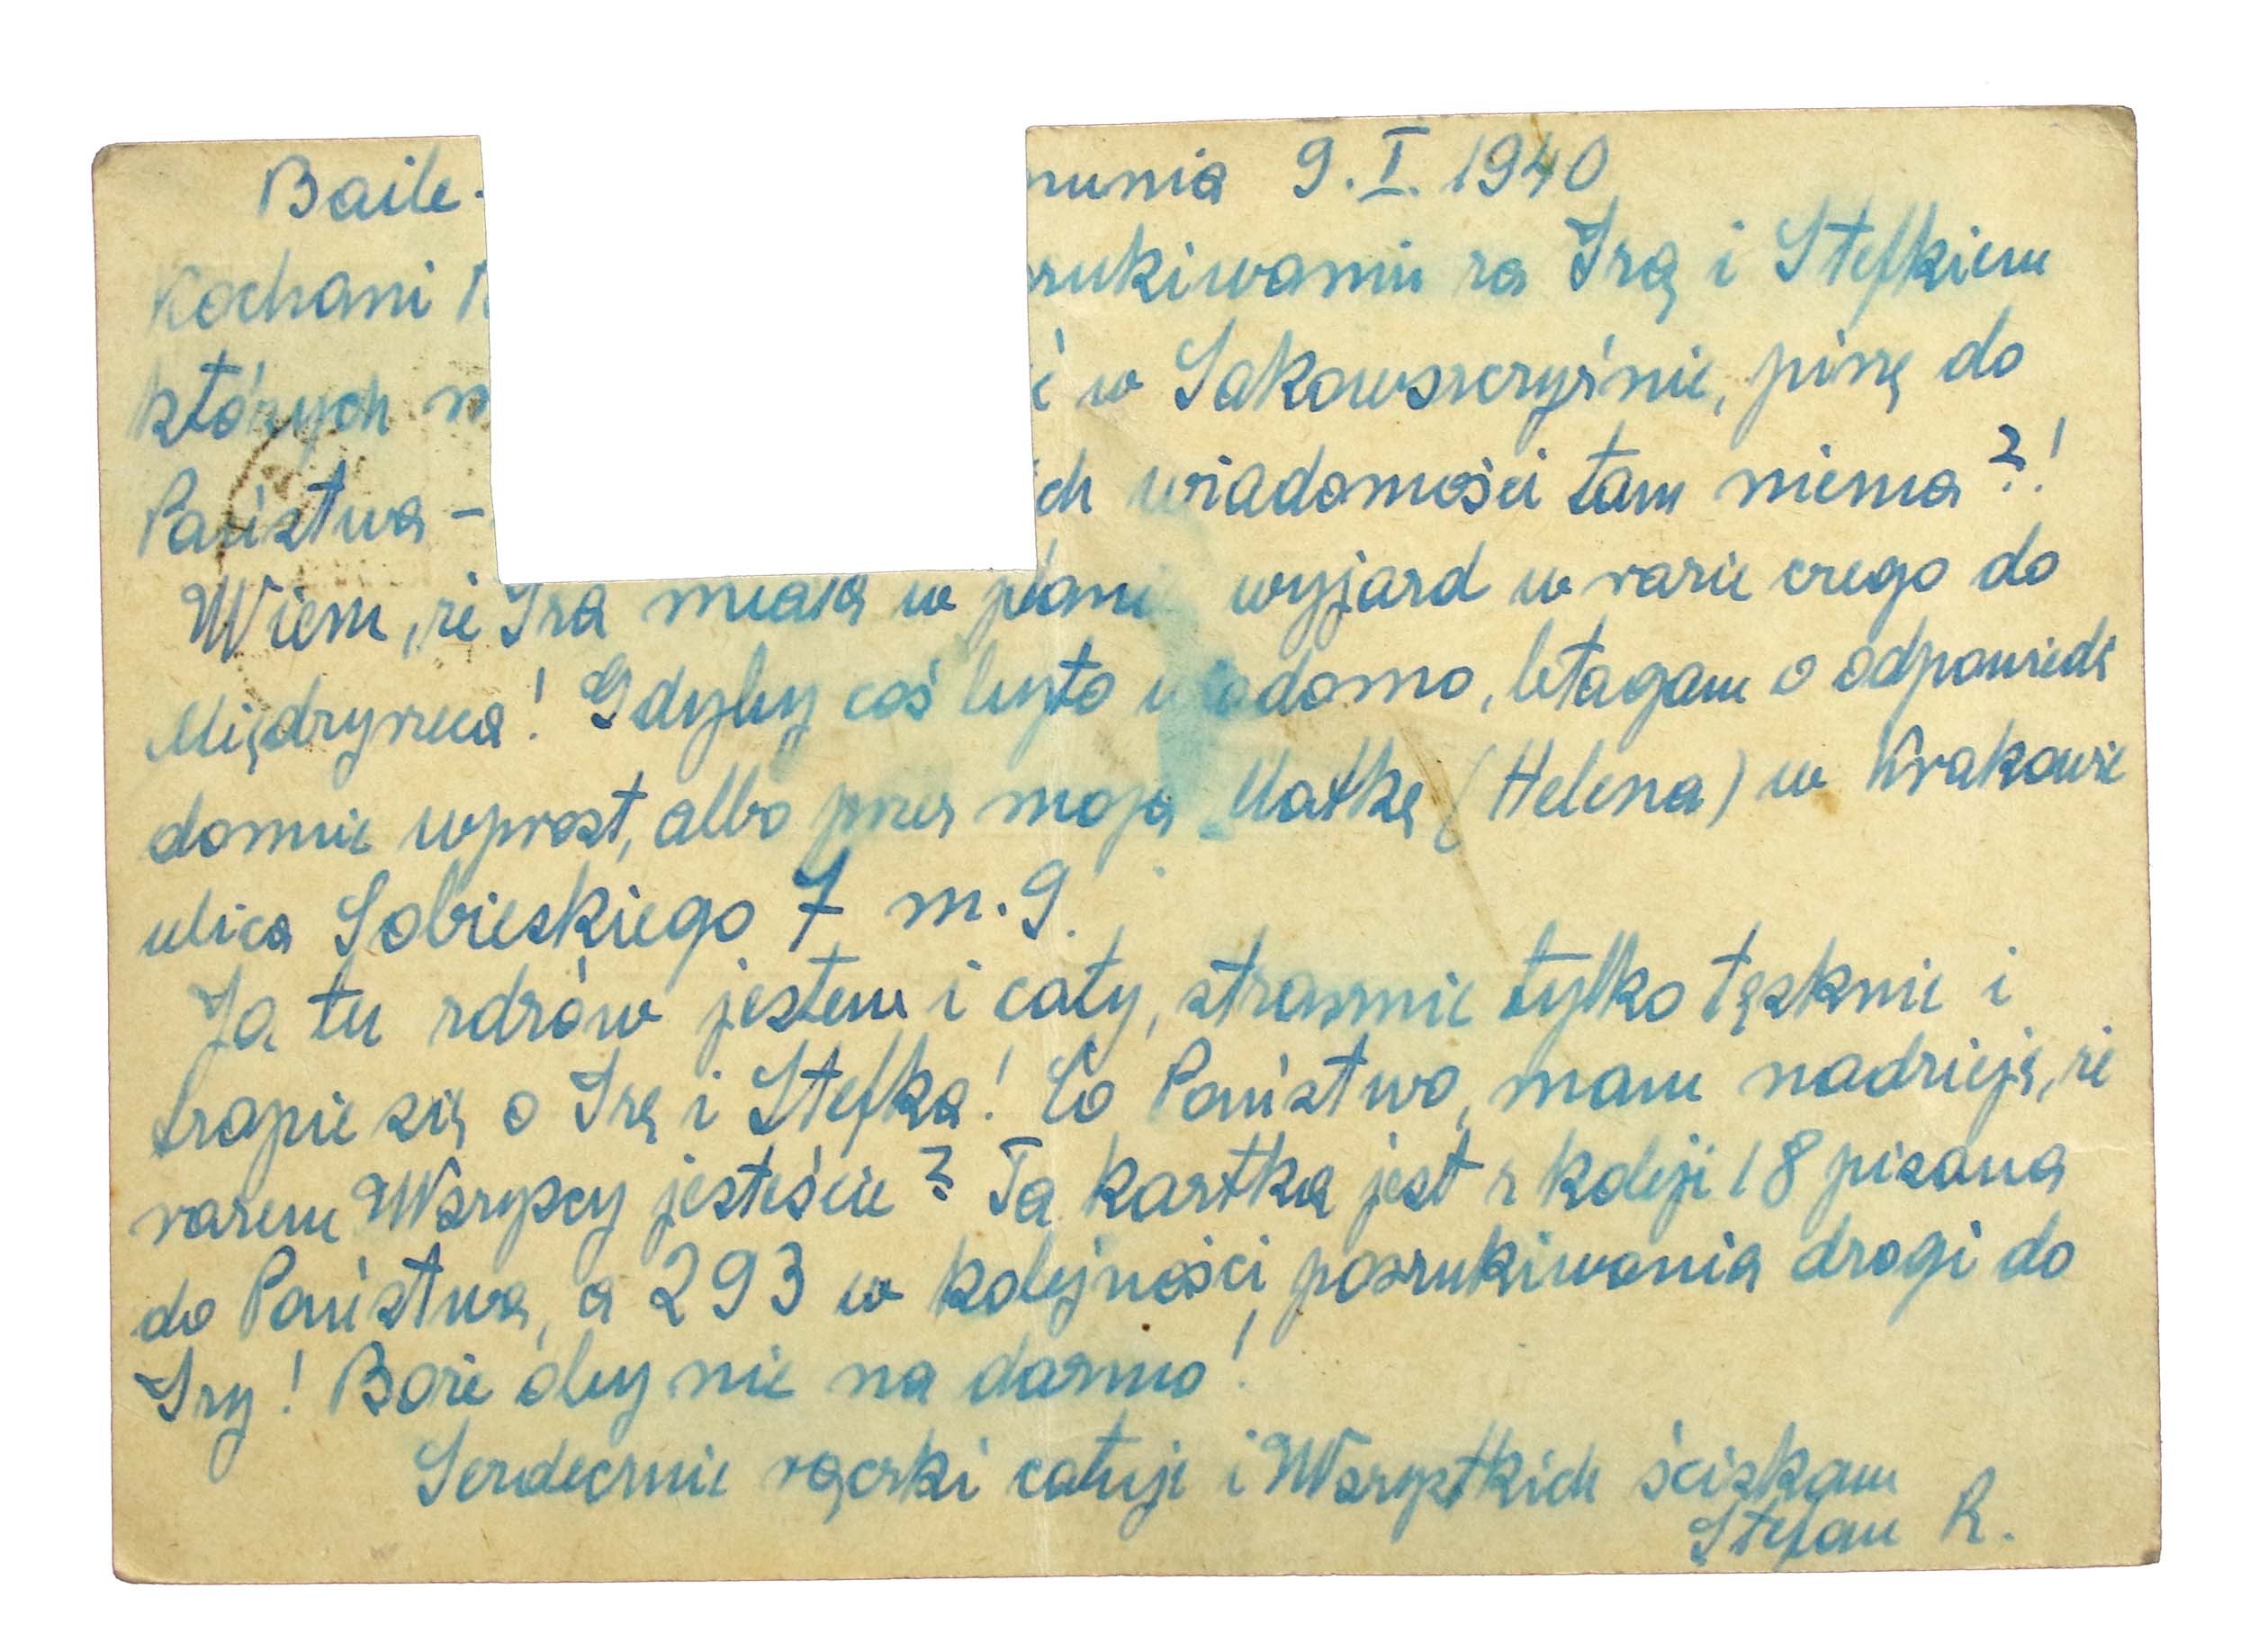 Baile- 9.I.1940
Kochani za Irą i Stefkiem
których w Sakowszczyźnie, piszę do
Państwa - wiadomości tam niema?!
Wiem, że Ira miała w planie wyjazd w razie czego do
Międzyrzeca! Gdyby coś było wiadomo, błagam o odpowiedź
do mnie wprost, albo przez moją Matkę (Helena) w Krakowie
ulica Sobieskiego 7 m. 9.
Ja tu zdrów jestem i cały, strasznie tylko tęsknie i
trapie się o Irę i Stefka! Co Państwo, mam nadzieję, że
razem Wszyscy jesteście? Ta kartka jest z koleji 18 pisana
do Państwa, a 293 w kolejności poszukiwania drogi do
Iry! Boże oby nie na darmo!
Serdecznie rączki całuje i Wszystkich ściskam
Stefan R.